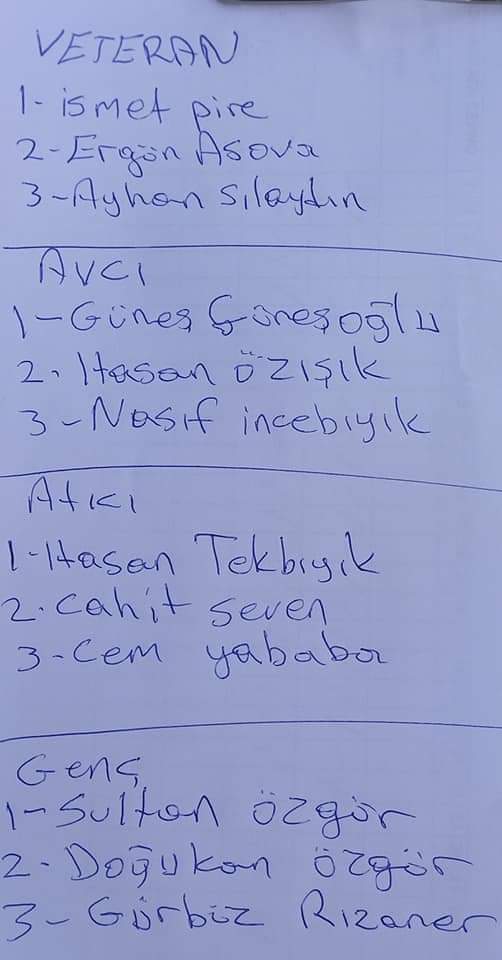 VETERAN
1- ismet pire
2-Ergün Asova
3-Ayhan Sılaydın
AVCI
1-Güneş Güneşoğlu
2. Hasan ÖZIŞIK
3-Nasıf incebıyık
Atıcı
1-Hasan Tekbıyık
2. Cahit seven
3-Cem yababa
Genç
1-Sultan özgür
2-Doğukan özgür
3-Gürbüz Rızaner